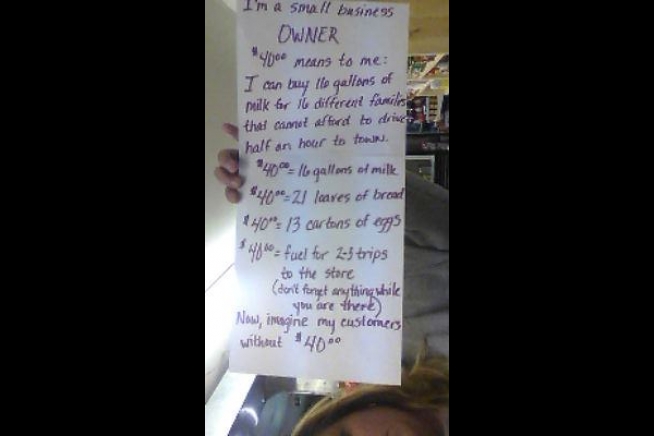 I'm a small business
OWNER
$40⁰⁰ means to me:
I can buy 16 gallons of
milk for 16 different families
that cannot afford to drive
half an hour to town.
$40⁰⁰ = 16 gallons of milk
$40⁰⁰ = 21 loaves of bread
$40⁰⁰ = 13 cartons of eggs
$40⁰⁰ = fuel for 2-3 trips
to the store
(don't forget anything while
you are there)
Now, imagine my customers
without $40⁰⁰